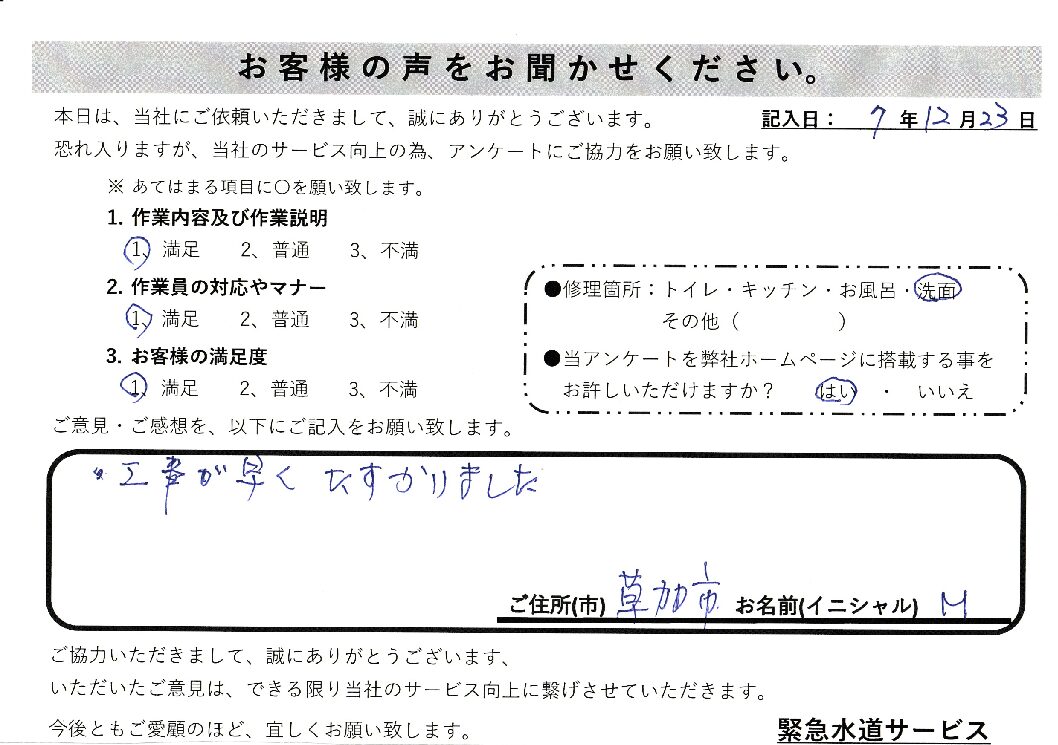 お客様の声をお聞かせください。
本日は、当社にご依頼いただきまして、誠にありがとうございます。
記入日： 7 年 12 月 23 日
恐れ入りますが、当社のサービス向上の為、アンケートにご協力をお願い致します。
※ あてはまる項目に〇を願い致します。
1. 作業内容及び作業説明
1、満足 2、普通 3、不満
2. 作業員の対応やマナー
1、満足 2、普通 3、不満
3. お客様の満足度
1、満足 2、普通 3、不満
●修理箇所：トイレ・キッチン・お風呂・洗面
その他（ ）
●当アンケートを弊社ホームページに搭載する事を
お許しいただけますか？ はい ・ いいえ
ご意見・ご感想を、以下にご記入をお願い致します。
工事が早く たすかりました
ご住所(市) 草加市 お名前(イニシャル) M
ご協力いただきまして、誠にありがとうございます、
いただいたご意見は、できる限り当社のサービス向上に繋げさせていただきます。
今後ともご愛顧のほど、宜しくお願い致します。
緊急水道サービス